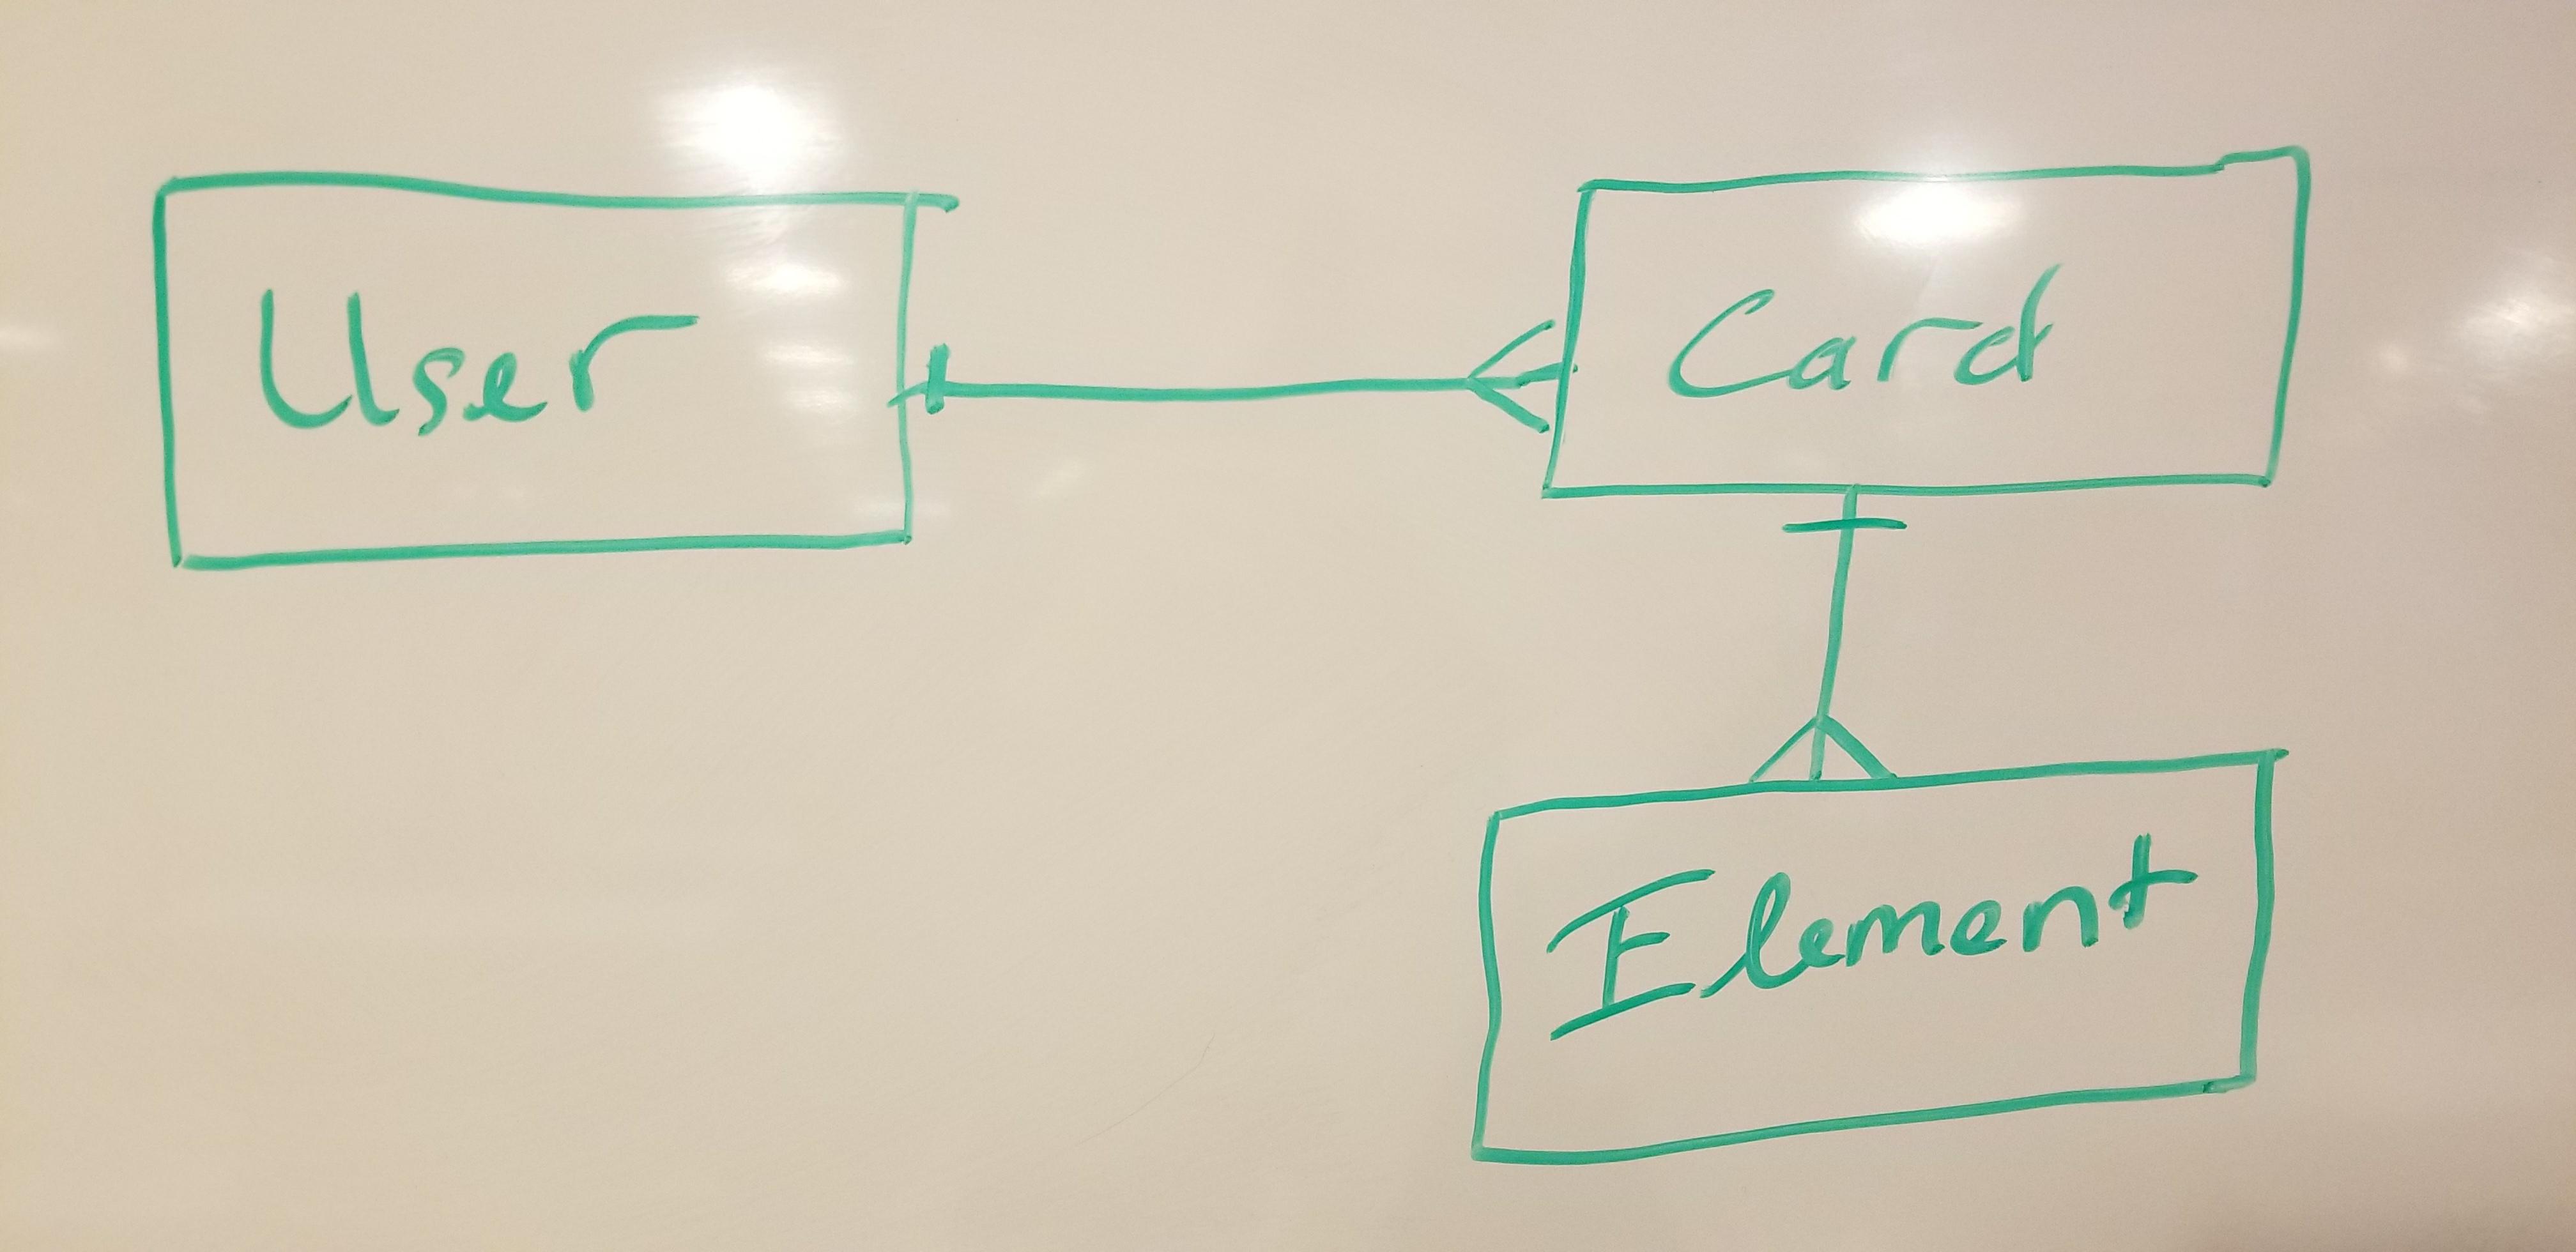 User
Card
Element